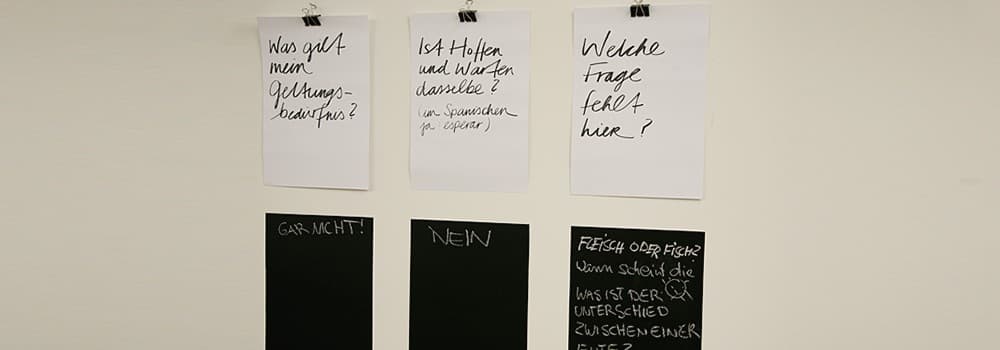 Was gilt
mein
Geltungs-
bedürfnis?
Ist Hoffen
und Warten
dasselbe?
(im Spanischen
ja: esperar)
Welche
Frage
fehlt
hier?
GAR NICHT!
NEIN
FLEISCH ODER FISCH?
Wann scheint die
WAS IST DER
UNTERSCHIED
ZWISCHEN EINER
ENTE?